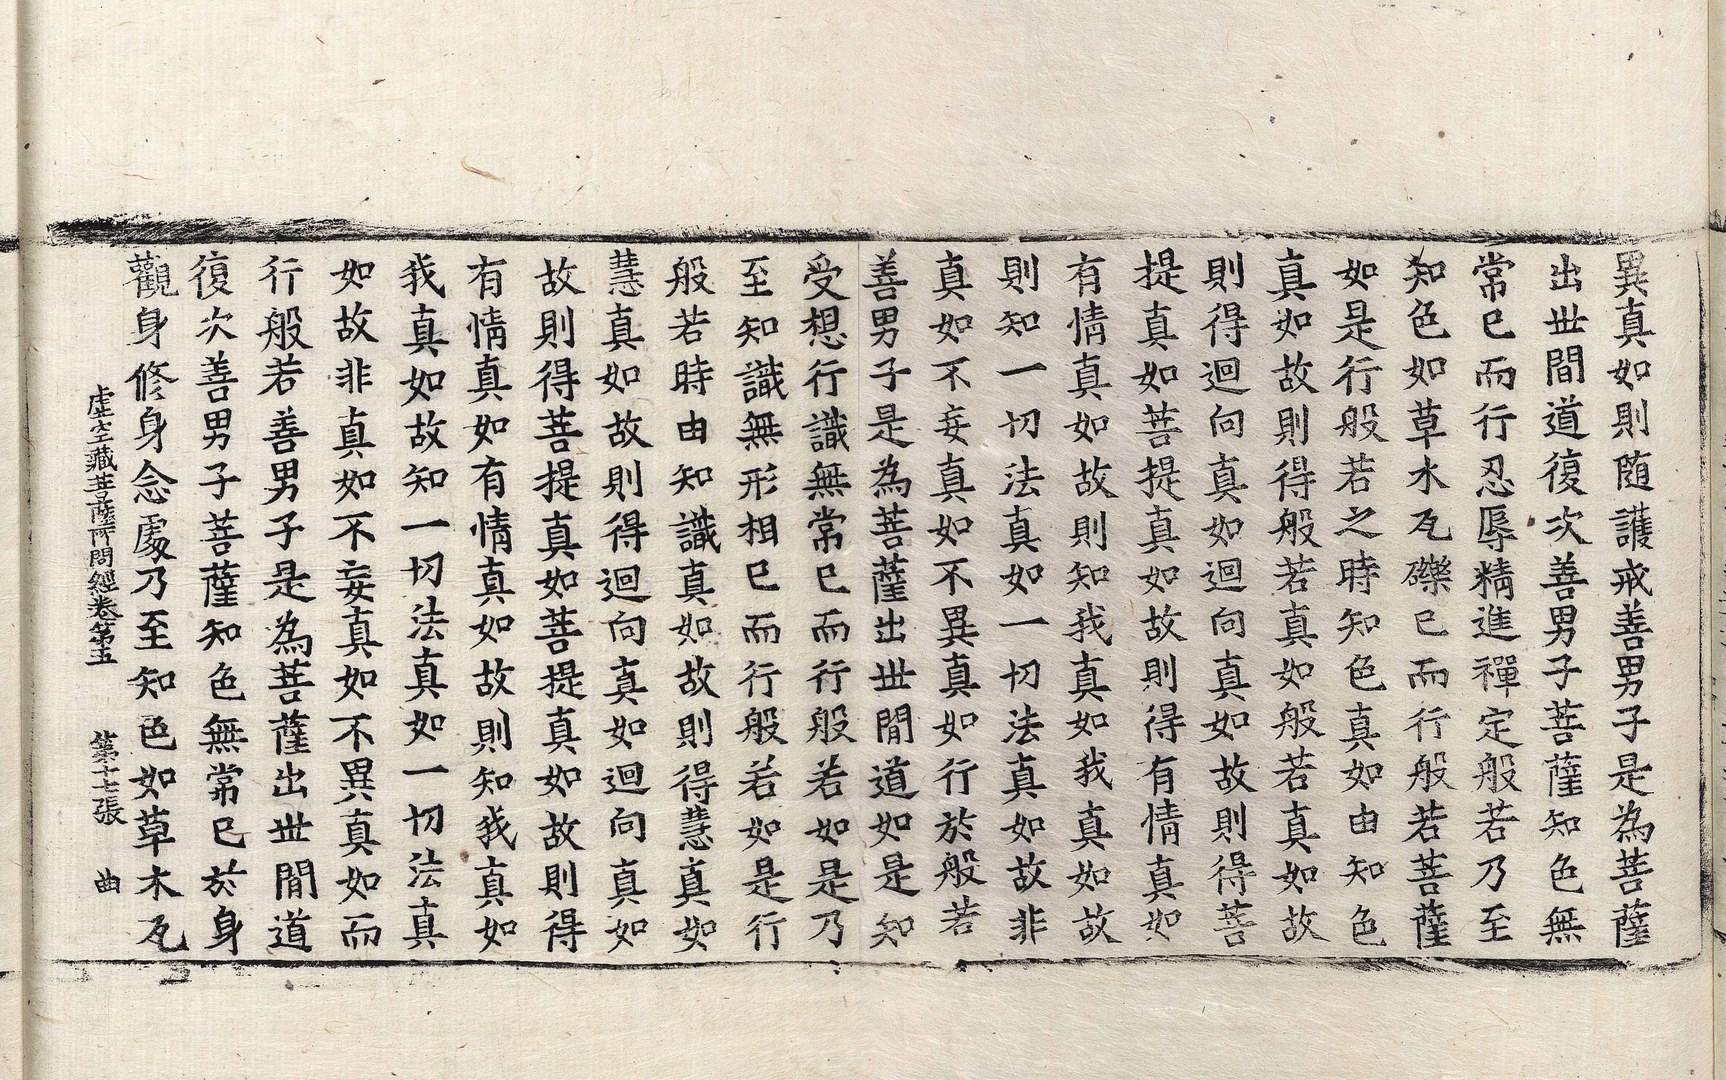 異真如則随護戒善男子是為菩薩
出世間道復次善男子菩薩知色無
常已而行忍辱精進禪定般若乃至
知色如草木瓦礫已而行般若菩薩
如是行般若之時知色真如由知色
真如故則得般若真如般若真如故
則得迴向真如迴向真如故則得菩
提真如菩提真如故則得有情真如
有情真如故則知我真如我真如故
則知一切法真如一切法真如故非
真如不妄真如不異真如行於般若
善男子是為菩薩出世間道如是知
受想行識無常已而行般若如是乃
至知識無形相已而行般若如是行
般若時由知識真如故則得慧真如
慧真如故則得迴向真如迴向真如
故則得菩提真如菩提真如故則得
有情真如有情真如故則知我真如
我真如故知一切法真如一切法真
如故非真如不妄真如不異真如而
行般若善男子是為菩薩出世間道
復次善男子菩薩知色無常已於身
觀身修身念處乃至知色如草木瓦
虛空藏菩薩所問經卷第五 第十七張 曲